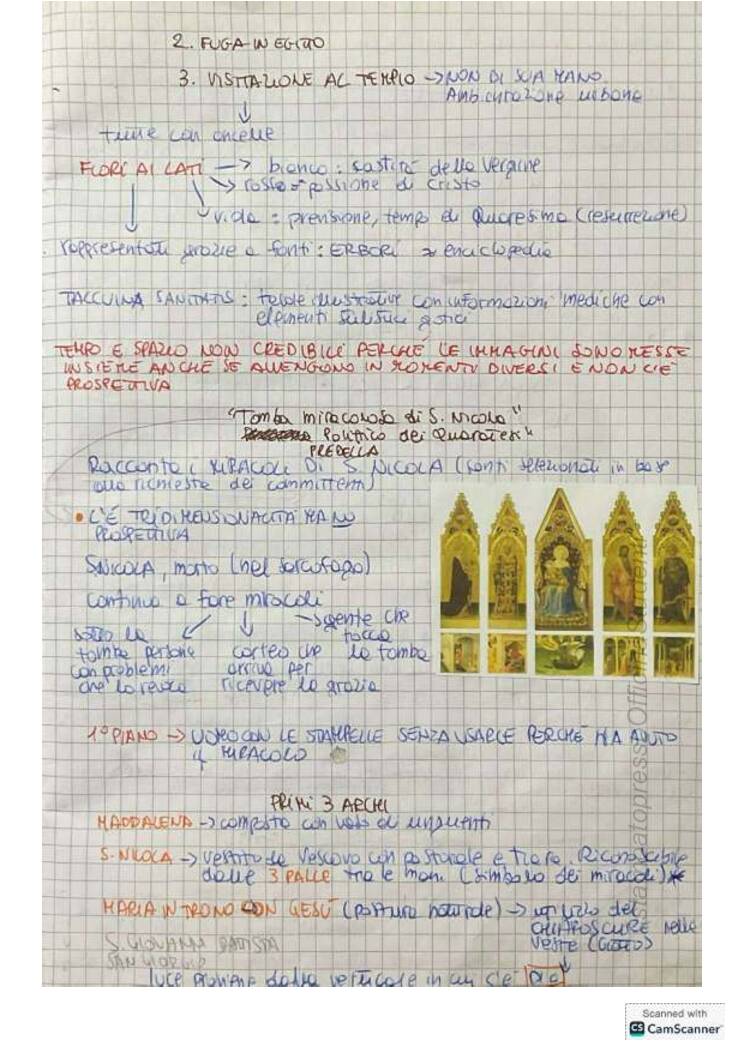 2. FUGA IN EGITTO
3. VISITAZIONE AL TEMPIO → NON DI SUA MANO.
Ambientazione urbana
FIORI AI LATI → bianco: castità della Vergine
→ rosso = passione di Cristo
viola = prensione, tempo di Quaresima (resurrezione)
rappresentati grazie a fonti: ERBORI ≈ enciclopedia
TACCUINA SANITATIS: tavole illustrative con informazioni mediche con
elementi gotici
TEMPO E SPAZIO NON CREDIBILI PERCHÉ LE IMMAGINI SONO MESSE
INSIEME ANCHE SE AVVENGONO IN MOMENTI DIVERSI E NON C'È
PROSPETTIVA
"Tomba miracolosa di S. Nicola"
Polittico dei Quaratesi"
PREDELLA
Racconta i MIRACOLI DI S. NICOLA (santi selezionati in base
alle richieste dei committenti)
• C'È TRIDIMENSIONALITÀ MA NO
PROSPETTIVA
S.NICOLA, morto (nel sarcofago)
continua a fare miracoli
sotto la
tomba persone
con problemi
che lo
corteo che
arriva per
ricevere la grazia
→ gente che
tocca
la tomba
1° PIANO → UOMO CON LE STAMPELLE SENZA USARLE PERCHÉ HA AVUTO
IL MIRACOLO
PRIMI 3 ARCHI
MADDALENA → composta con vaso di unguenti
S. NICOLA → vestito da Vescovo con pastorale e tiara. Riconoscibile
dalle 3 PALLE tra le mani (simbolo dei miracoli)*
MARIA IN TRONO CON GESÙ (postura naturale) → utilizzo del
CHIAROSCURE nelle
veste (GIOTTO)
S. GIOVANNI BATTISTA
SAN GIORGIO
luce proviene dalla verticale in cui c'è DIO
Scanned with
CS CamScanner